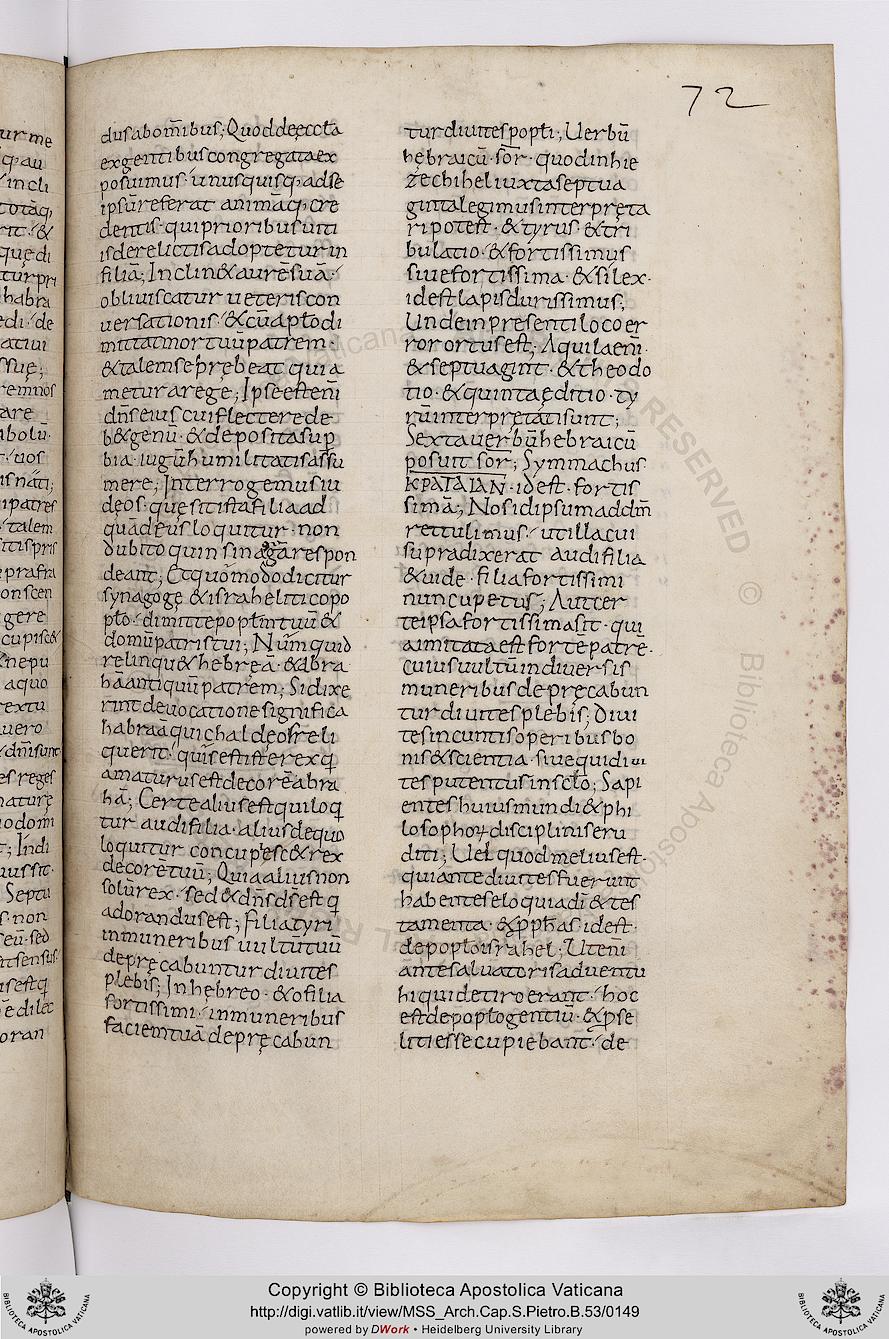 72
dusabom̅ibus; Quoddęeccta̅
exgentibuscongregataex
posuimus· unusquisq; adse
ipsu̅referat anima̅q; cre
dentis· quiprioribusuiti
isderelictisadopteturin
filia̅; Inclin&aure̅sua̅·
obliuiscatur ueteriscon
uersationis· &cu̅ap̅todi
mittatmortuu̅patrem·
&talemseprębeat quia
meturarege; Ipseesteni̅
dn̅seiuscuiflecterede
b&genu̅· &depositasup̲
bia· iugu̅humilitatisassu
mere; Interrogemusiu
deos· quęsitistafiliaad
qua̅deusloquitur· non
dubitoquinsinagoga̅respon
deant; Etquomododicitur
synagogę &israheliticopo
pt̅o· dimittepopt̅mtuu̅ &
domu̅patristui; Nu̅mquid
relinqu&hebręa̅· &abra
ha̅antiquu̅patrem; Sidixe
rintdeuocationesignifica
habraa̅quichaldęosreli
querit· quisestisterexq̇
amaturusestdecore̅abra
ha̅; Certealiusestquiloq̇
tur audifilia· aliusdequo
loquitur concupiesc&rex
decore̅tuu̅; Quiaaliusnon
solu̅rex· sed&dn̅sds̅estq̇
adorandusest; filiatyri
inmuneribus uultu̅tuu̅
depręcabunturdiuites
plebis; Inhębreo· &ofilia
fortissimi· inmuneribus
faciemtua̅depręcabun
turdiuitespopt̅i; Uerbu̅
hębraicu̅· sor· quodinhie
zechiheliuxtaseptua
gintalegimusinterpręta
ripotest· &tyrus· &tri
bulatio· &fortissimus
siuefortissima· &silex·
idestlapisdurissimus;
Undeinpresentilocoer
rorortusest; Aquilaeni̅·
&septuagint· &theodo
tio· &quintaęditio· ty
ru̅interprętatisunt;
Sextauerbu̅hebraicu̅
posuit sor; Symmachus
ΚΡΑΤΑΙΑΝ· idest· fortis
sima̅; Nosidipsumaddm̅
rettulimus· utillacui
supradixerat audifilia
&uide· filiafortissimi
nuncupetus; Autcer
teipsafortissimasit· qui
aimitataestforte̅patre̅·
cuiusuultu̅indiuersis
muneribusdepręcabun
turdiuitesplebis; Diui
tesincuntisoperibusbo
nis&scientia· siuequidiui
tesputentusinsclo̅; Sapi
enteshuiusmundi&phi
losophoꝝdisciplinis eru
diti; Uel quodmeliusest·
quiantediuitesfuerunt
habenteseloquiadi̅&tes
tamenta· &pph̅as· idest·
depopt̅oisrahel; Uteni̅
antesaluatorisaduentu
hiquidetiroerant· hoc
estdepopt̅ogentiu̅· &pse
litiessecupiebant· de
Copyright © Biblioteca Apostolica Vaticana
http://digi.vatlib.it/view/MSS_Arch.Cap.S.Pietro.B.53/0149
powered by DWork • Heidelberg University Library